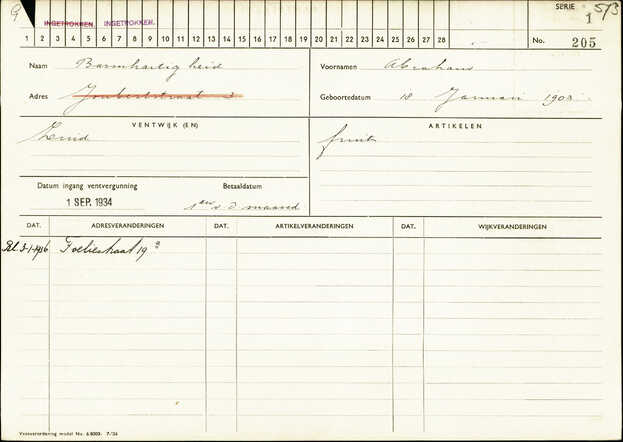 9 INGETROKKEN INGETROKKEN SERIE 1 573
1 2 3 4 5 6 7 8 9 10 11 12 13 14 15 16 17 18 19 20 21 22 23 24 25 26 27 28 No. 205
Naam Barmhartigheid Voornamen Abraham
Adres Joubertstraat 3 Geboortedatum 18 Januari 1903
VENTWIJK (EN) ARTIKELEN
Zuid fruit
Datum ingang ventvergunning Betaaldatum
1 SEP. 1934 1ste v d maand
DAT. ADRESVERANDERINGEN DAT. ARTIKELVERANDERINGEN DAT. WIJKVERANDERINGEN
3-1-1936 Foeliestraat 19
Ventverordening model No. 6 8003- 7-'34